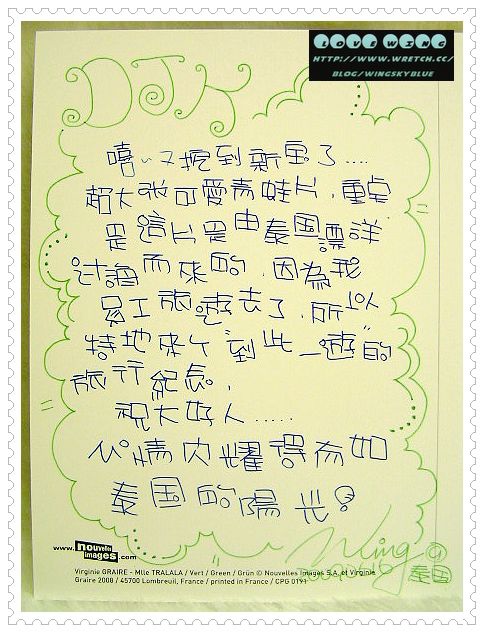 LOVE WING
HTTP://WWW.WRETCH.CC/
BLOG/WINGSKYBLUE
DJK
嘻~又挖到新寶了....
超大張可愛青蛙片，重点
是這片是由泰国漂洋
过海而來的，因為我
員工旅遊去了，所以
特地來个"到此一遊"的
旅行紀念，
祝大好人.....
心情閃耀得有如
泰国的陽光!
Wing@
泰国
www.nouvelles images.com
Virginie GRAIRE - Mlle TRALALA / Vert / Green / Grün © Nouvelles Images S.A. et Virginie
Graire 2008 / 45700 Lombreuil, France / printed in France / CPG D191